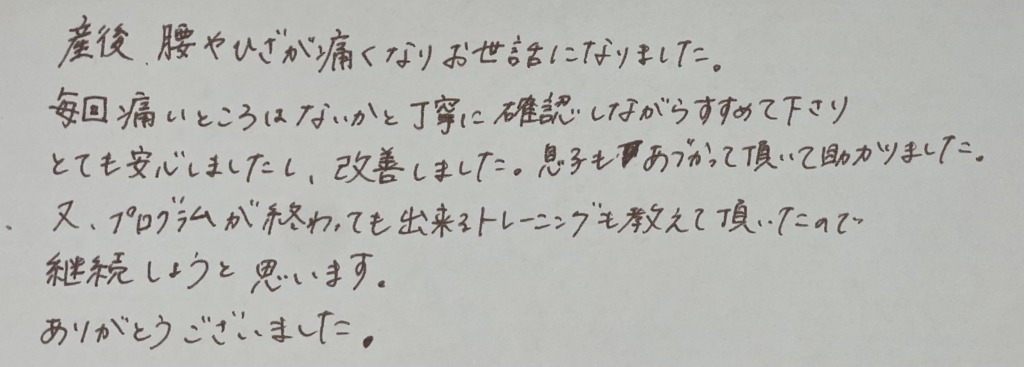 産後、腰やひざが痛くなりお世話になりました。
毎回痛いところはないかと丁寧に確認しながらすすめて下さり
とても安心しましたし、改善しました。息子もあづかって頂いて助かりました。
又、プログラムが終わっても出来るトレーニングも教えて頂いたので
継続しようと思います。
ありがとうございました。